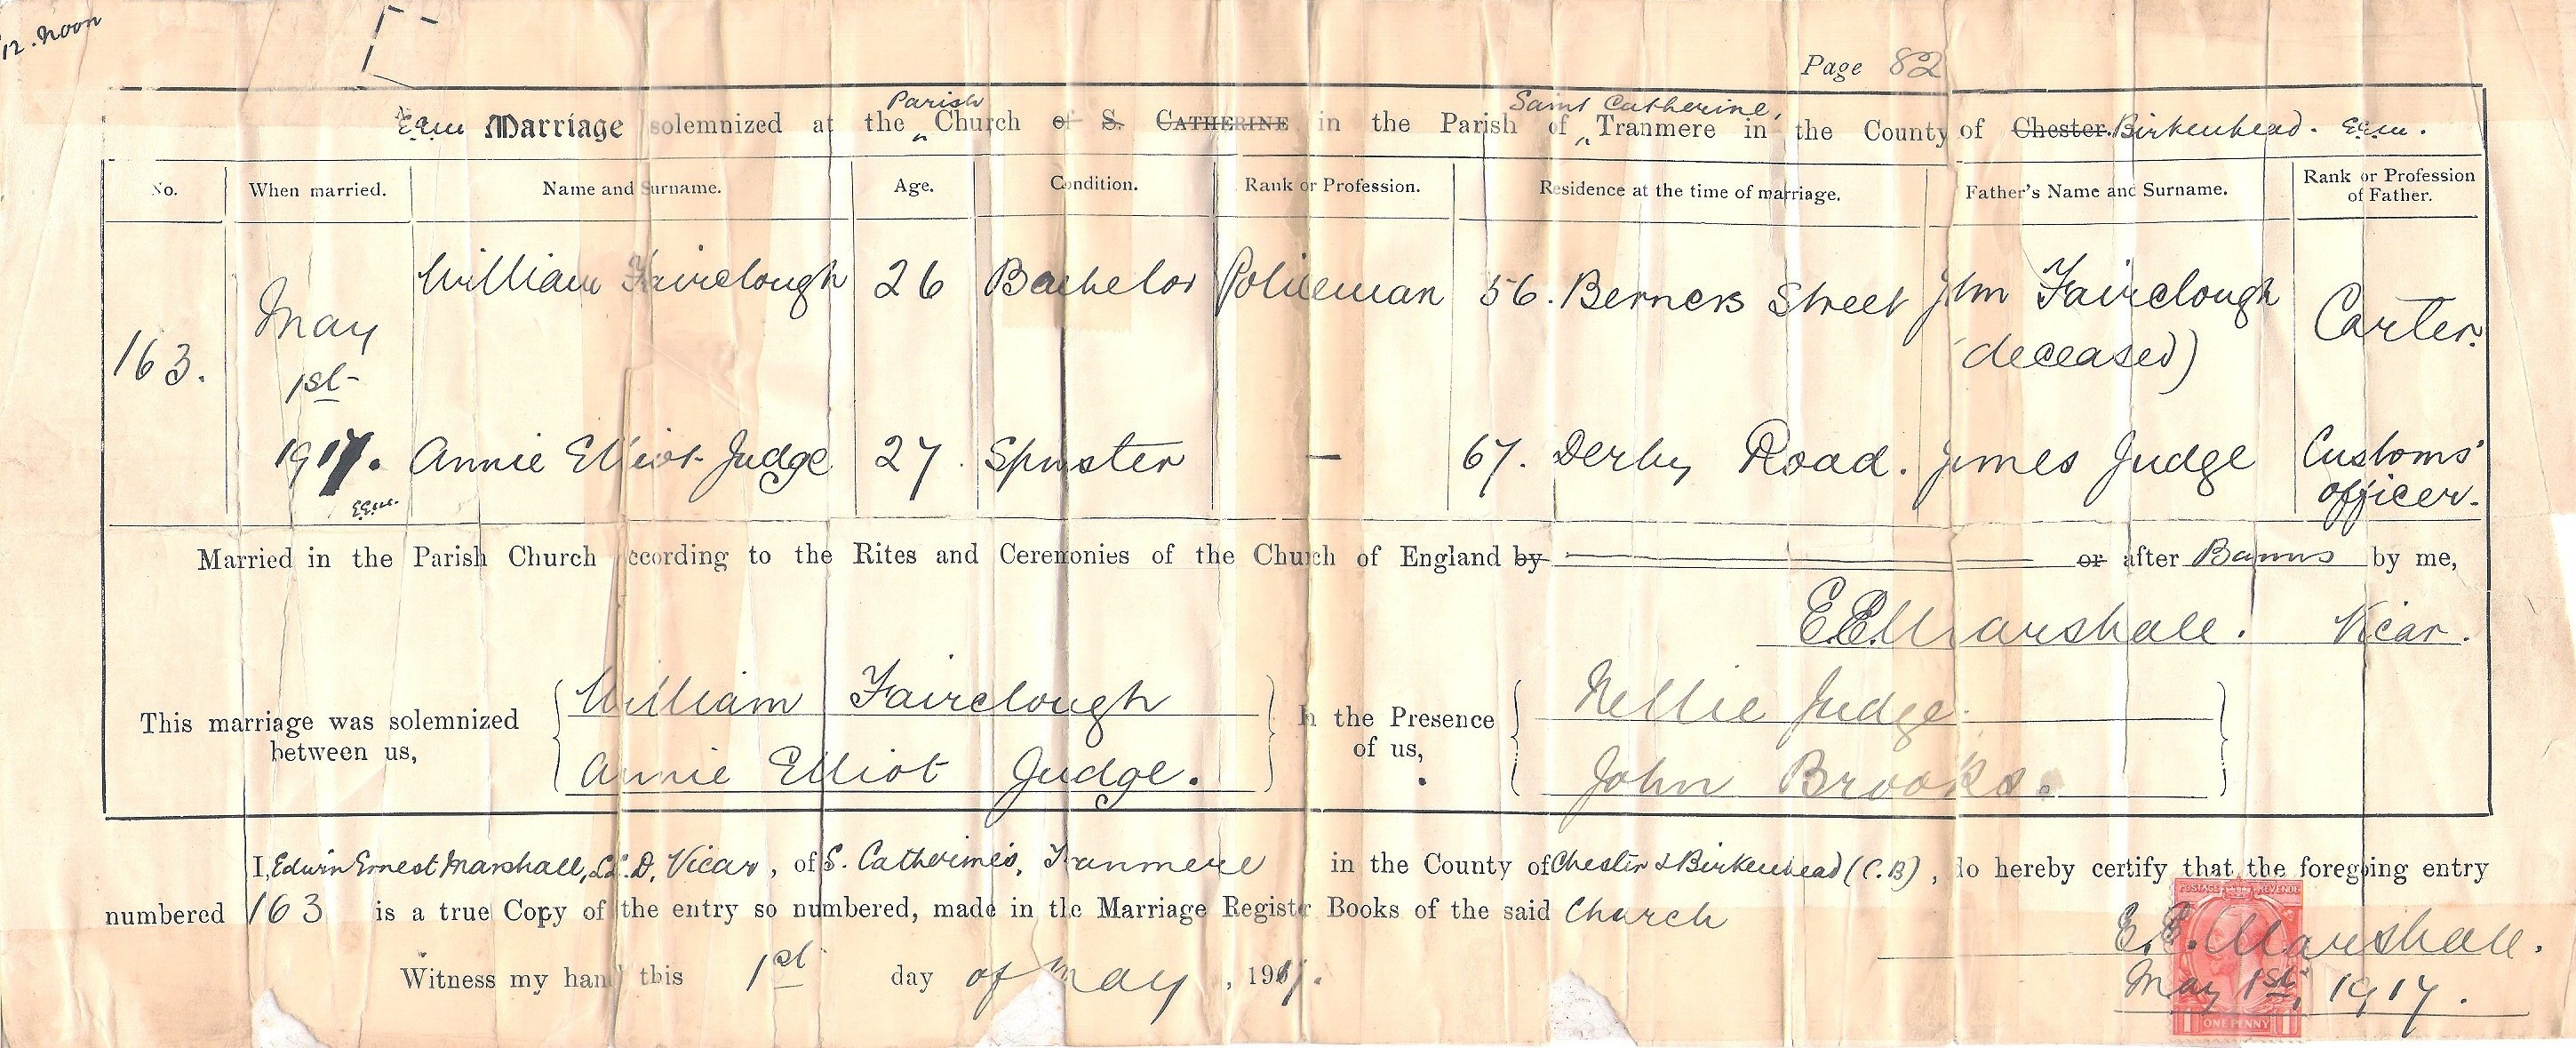 12. Noon
Page 82
Parish Saint Catherine,
E.E.M. Marriage solemnized at the Church of S. Catherine in the Parish of Tranmere in the County of Chester. Birkenhead. E.E.M.
No. When married. Name and Surname. Age. Condition. Rank or Profession. Residence at the time of marriage. Father's Name and Surname. Rank or Profession of Father.
163. May 1st 1917. E.E.M.
William Fairclough 26 Bachelor Policeman 56. Berners Street John Fairclough (deceased) Carter.
Annie Elliot Judge 27. Spinster — 67. Derby Road. James Judge Customs' officer.
Married in the Parish Church according to the Rites and Ceremonies of the Church of England by or after Banns by me,
E.E. Marshall. Vicar.
This marriage was solemnized between us,
William Fairclough
Annie Elliot Judge.
In the Presence of us,
Nellie Judge.
John Brooks.
I, Edwin Ernest Marshall, LL.D, Vicar, of S. Catherine's, Tranmere in the County of Chester & Birkenhead (C.B), do hereby certify that the foregoing entry
numbered 163 is a true Copy of the entry so numbered, made in the Marriage Register Books of the said Church
Witness my hand this 1st day of May, 1917.
E.E. Marshall.
May 1st, 1917.
POSTAGE REVENUE
ONE PENNY